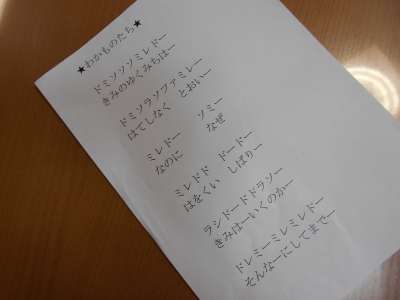 ★わかものたち★
ドミソソソミレドー
きみのゆくみちはー
ドミソラソファミレー
はてしなく とおいー
ソミー
なぜ
ミレドー
なのに
ミレドド ドードー
はをくい しばりー
ラシドードドラソー
きみはーいくのかー
ドレミーミレミレドー
そんなーにしてまでー